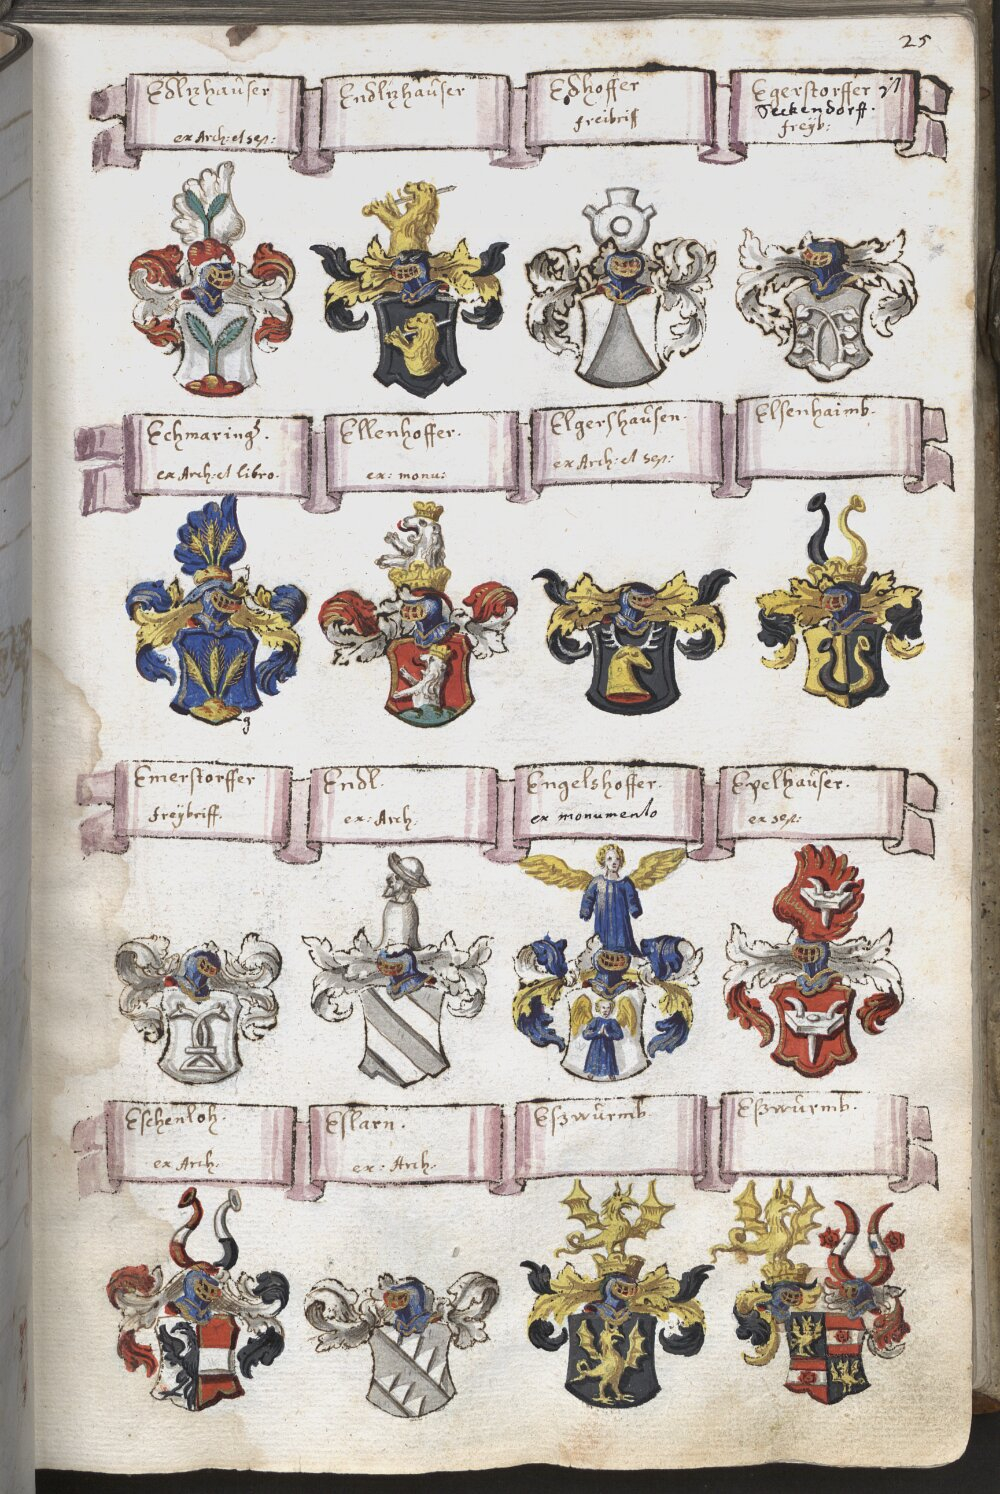 25
Edlzhaüser
ex Arch: et sep:
Endlzhaüser
Edhoffer
freibrif
Egerstorffer zu
Teckendorff.
freÿb:
Echmaring.
ex Arch: et libro.
Ellenhoffer.
ex: monu:
Elgershaüsen.
ex Arch: et sep:
Elsenhaimb.
g
Emerstorffer
freÿbriff.
Endl.
ex: Arch.
Engelshoffer.
ex monumento
Epelhaüser.
ex sep:
Eschenloh.
ex Arch.
Eslarn.
ex: Arch.
Eszwürmb.
Eszwürmb.